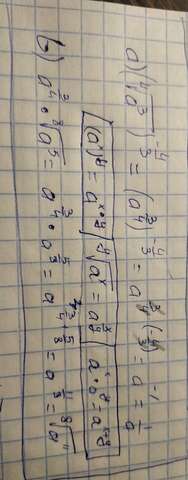 а) (⁴√a³)^(-4/3) = (a^(3/4))^(-4/3) = a^(3/4 · (-4/3)) = a^(-1) = 1/a
(a^x)^y = a^(x·y) ʸ√a^x = a^(x/y) a^x · a^y = a^(x+y)
б) a^(3/4) · ⁸√a⁵ = a^(3/4) · a^(5/8) = a^(3/4 + 5/8) = a^(11/8) = ⁸√a¹¹